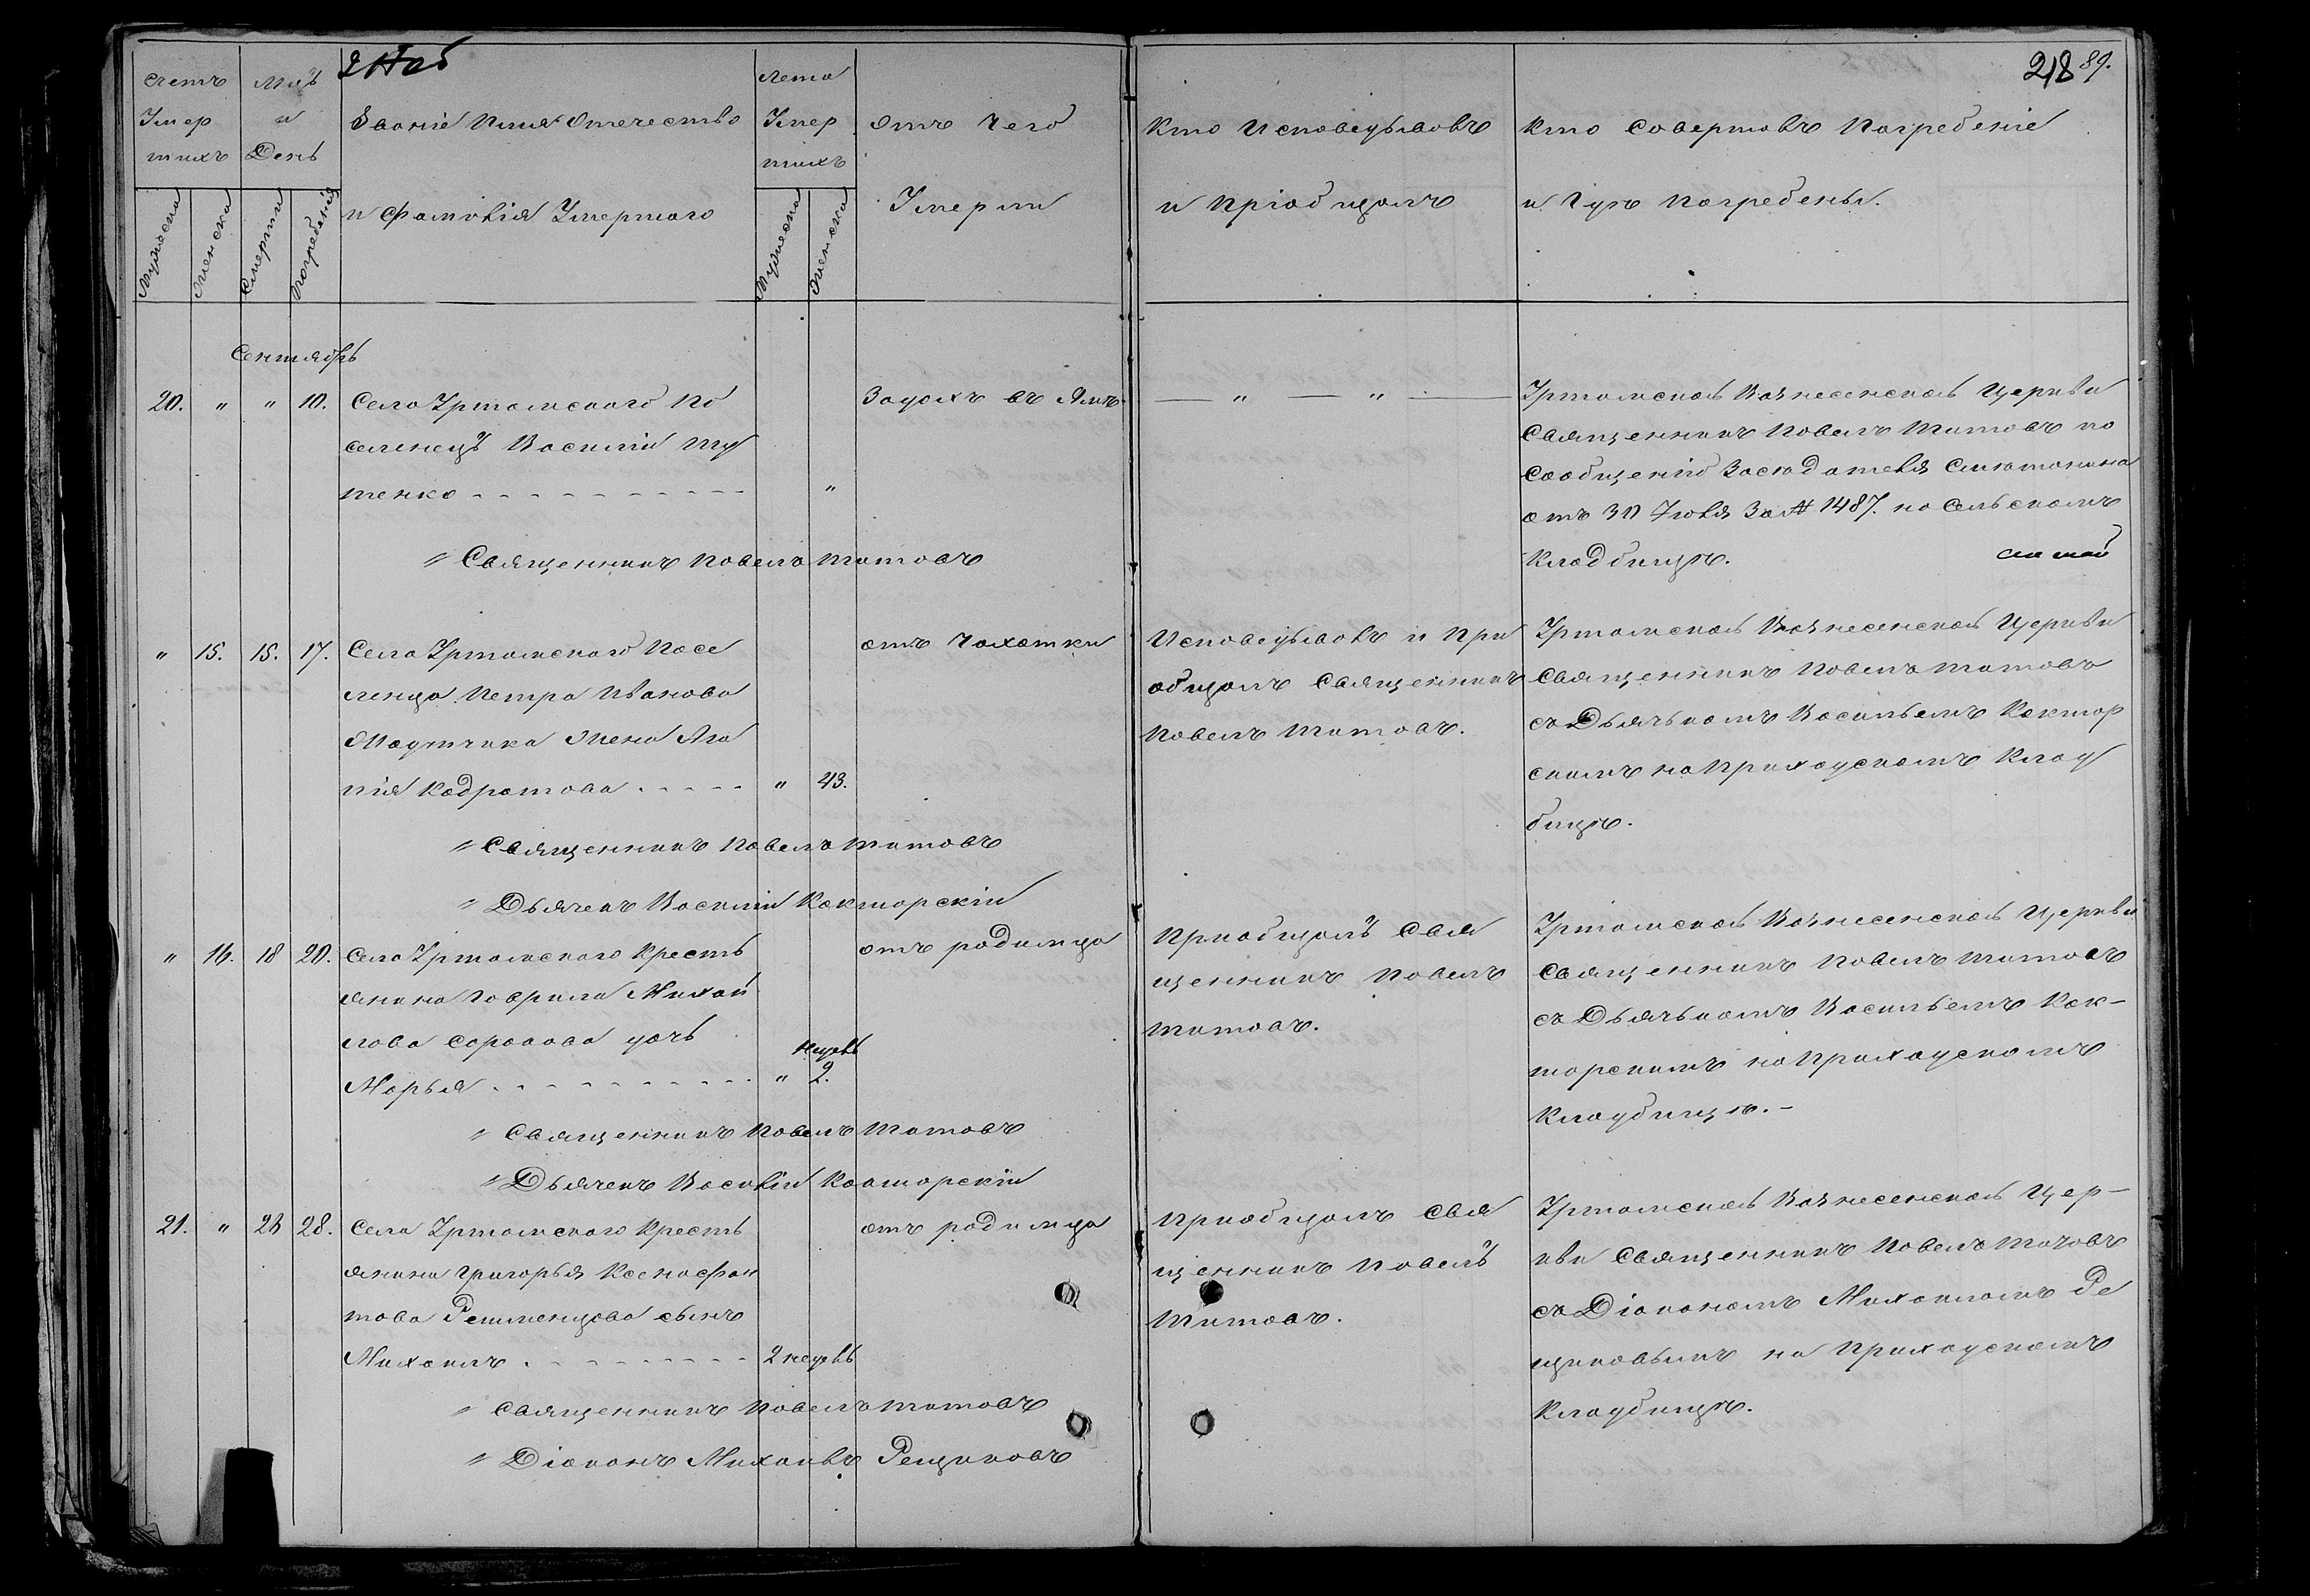 218 89.
Счетъ
Умер
шихъ
Мужеска
Женска
Мцъ
и
День
Смерти
Погребенія
Званіе Имя Отечество
и Фамилія Умершаго
Лета
Умер
шихъ
Мужеска
Женска
Отъ Чего
Умерли
Кто Исповедывалъ
и Пріобщалъ
Кто Совершалъ Погребеніе
и Гдѣ Погребены.
Сентябрь
20. " " 10.
Села Уртамскаго По
селенецъ Василій
тенко "
Задохъ въ Ямѣ
" "
Уртамской Вознесенской Церкви
Священникъ Павелъ Титовъ по
сообщенію Заседателя
отъ 30 Іюля За № 1487. на Сельскомъ
Кладбищѣ.
" Священникъ Павелъ Титовъ
" 15. 15. 17.
Села Уртамскаго Посе
ленца Петра Иванова
жена Ага
пія Кодратова " 43.
отъ Чахотки
Исповедывалъ и При
общалъ Священникъ
Павелъ Титовъ.
Уртамской Вознесенской Церкви
Священникъ Павелъ Титовъ
съ Дьячькомъ Васильемъ Коктор
скимъ на Приходскомъ Клад
бищѣ.
" Священникъ Павелъ Титовъ
" Дьячекъ Василій Кокторскій
" 16. 18 20.
Села Уртамскаго Кресть
янина Гаврила Михай
лова дочь
Марья " 2. недѣль
отъ родимца
Приобщалъ Свя
щенникъ Павелъ
Титовъ.
Уртамской Вознесенской Церкви
Священникъ Павелъ Титовъ
съ Дьячькомъ Васильемъ Кок-
торскимъ на Приходскомъ
Кладбищѣ.-
" Священникъ Павелъ Титовъ
" Дьячекъ Василій Кокторскій
21. " 26 28.
Села Уртамскаго Кресть
янина Григорья Ксенофон
това сынъ
Михаилъ 2 недѣль
отъ родимца
Приобщалъ Свя
щенникъ Павелъ
Титовъ.
Уртамской Вознесенской Цер-
кви Священникъ Павелъ Титовъ
съ Діакономъ Михаиломъ Ре
щиковымъ на Приходскомъ
Кладбищѣ.
" Священникъ Павелъ Титовъ
" Діаконъ Михаилъ Рещиковъ